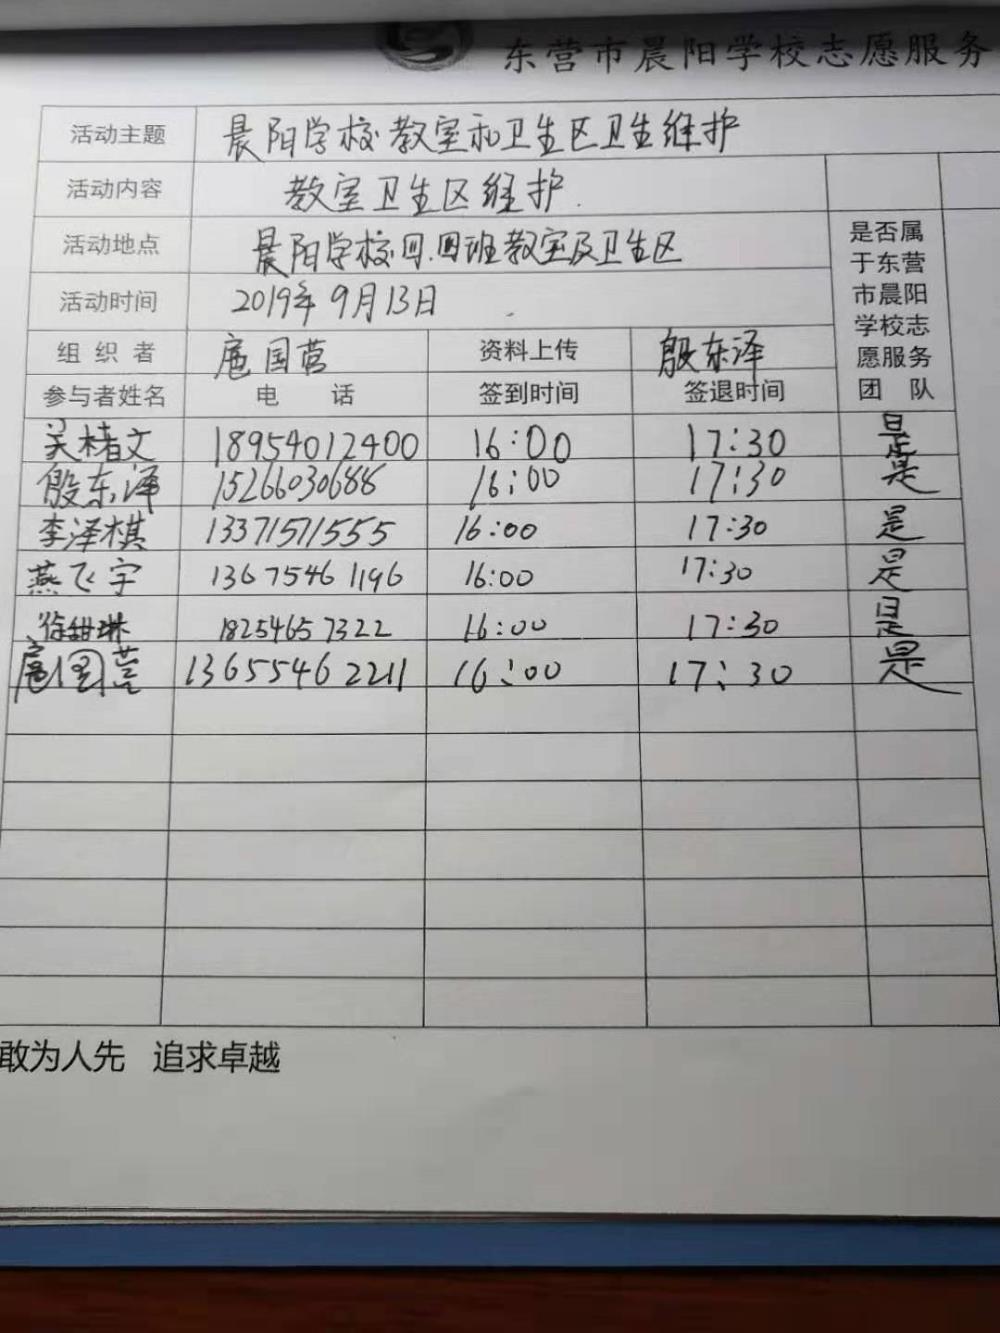 东营市晨阳学校志愿服务
活动主题 晨阳学校教室和卫生区卫生维护
活动内容 教室卫生区维护.
活动地点 晨阳学校四.四班教室及卫生区
活动时间 2019年9月13日
是否属于东营市晨阳学校志愿服务团队
组织者 扈国营 资料上传 殷东泽
参与者姓名 电话 签到时间 签退时间
吴楮文 18954012400 16:00 17:30 是
殷东泽 15266030688 16:00 17:30 是
李泽棋 13371571555 16:00 17:30 是
燕飞宇 13675461196 16:00 17:30 是
徐甜琳 18254657322 16:00 17:30 是
扈国营 13655462211 16:00 17:30 是
敢为人先 追求卓越